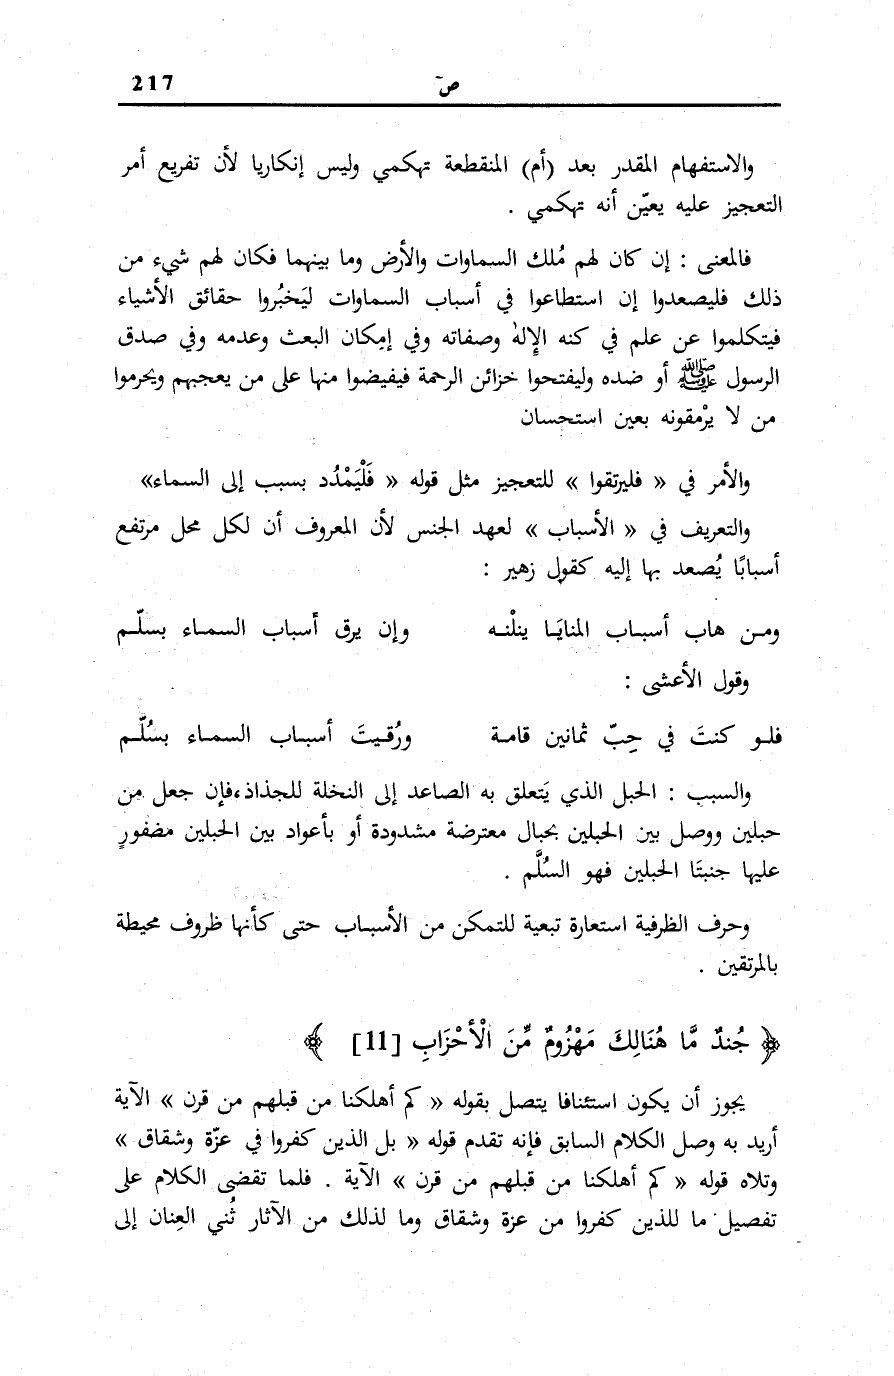 217 صۤ
والاستفهام المقدر بعد (أم) المنقطعة تهكمي وليس إنكاريا لأن تفريع أمر
التعجيز عليه يعيّن أنه تهكمي .
فالمعنى : إن كان لهم مُلك السماوات والأرض وما بينهما فكان لهم شيء من
ذلك فليصعدوا إن استطاعوا في أسباب السماوات ليَخبُروا حقائق الأشياء
فيتكلموا عن علم في كنه الإِلٰه وصفاته وفي إمكان البعث وعدمه وفي صدق
الرسول ﷺ أو ضده وليفتحوا خزائن الرحمة فيفيضوا منها على من يعجبهم ويحرموا
من لا يرْمقونه بعين استحسان
والأمر في « فليرتقوا » للتعجيز مثل قوله « فَلْيَمْدُد بسبب إلى السماء»
والتعريف في « الأسباب » لعهد الجنس لأن المعروف أن لكل محل مرتفع
أسبابًا يُصعد بها إليه كقول زهير :
ومـن هاب أسبـاب المنايَـا ينلْنـه وإن يرق أسباب السمـاء بسلّـم
وقول الأعشى :
فلـو كنتَ في حِبّ ثمانين قامـة ورُقـيتَ أسبـاب السمـاء بسُلَّـم
والسبب : الحبل الذي يَتعلق به الصاعد إلى النخلة للجذاذ،فإن جعل من
حبلين ووصل بين الحبلين بحبال معترضة مشدودة أو بأعواد بين الحبلين مضفورٍ
عليها جنبتَا الحبلين فهو السُلَّم .
وحرف الظرفية استعارة تبعية للتمكن من الأسباب حتى كأنها ظروف محيطة
بالمرتقين .
﴿ جُندٌ مَّا هُنَالِكَ مَهْزُومٌ مِّنَ الْأَحْزَابِ [11] ﴾
يجوز أن يكون استئنافا يتصل بقوله « كم أهلكنا من قبلهم من قرن » الآية
أريد به وصل الكلام السابق فإنه تقدم قوله « بل الذين كفروا في عزّة وشقاق »
وتلاه قوله « كم أهلكنا من قبلهم من قرن » الآية . فلما تقضى الكلام على
تفصيل ما للذين كفروا من عزة وشقاق وما لذلك من الآثار ثُني العِنان إلى